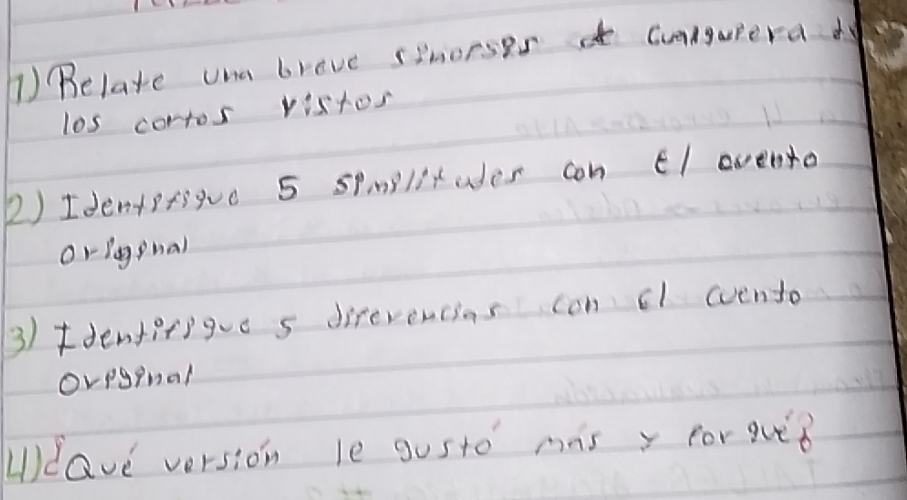 1) Relate una breve sinopsis de cualquiera de
los cortos vistos
2) Identifique 5 similitudes con El cuento
original
3) Identifique 5 diferencias con el cuento
original
4) ¿Qué versión le gustó más y por qué?